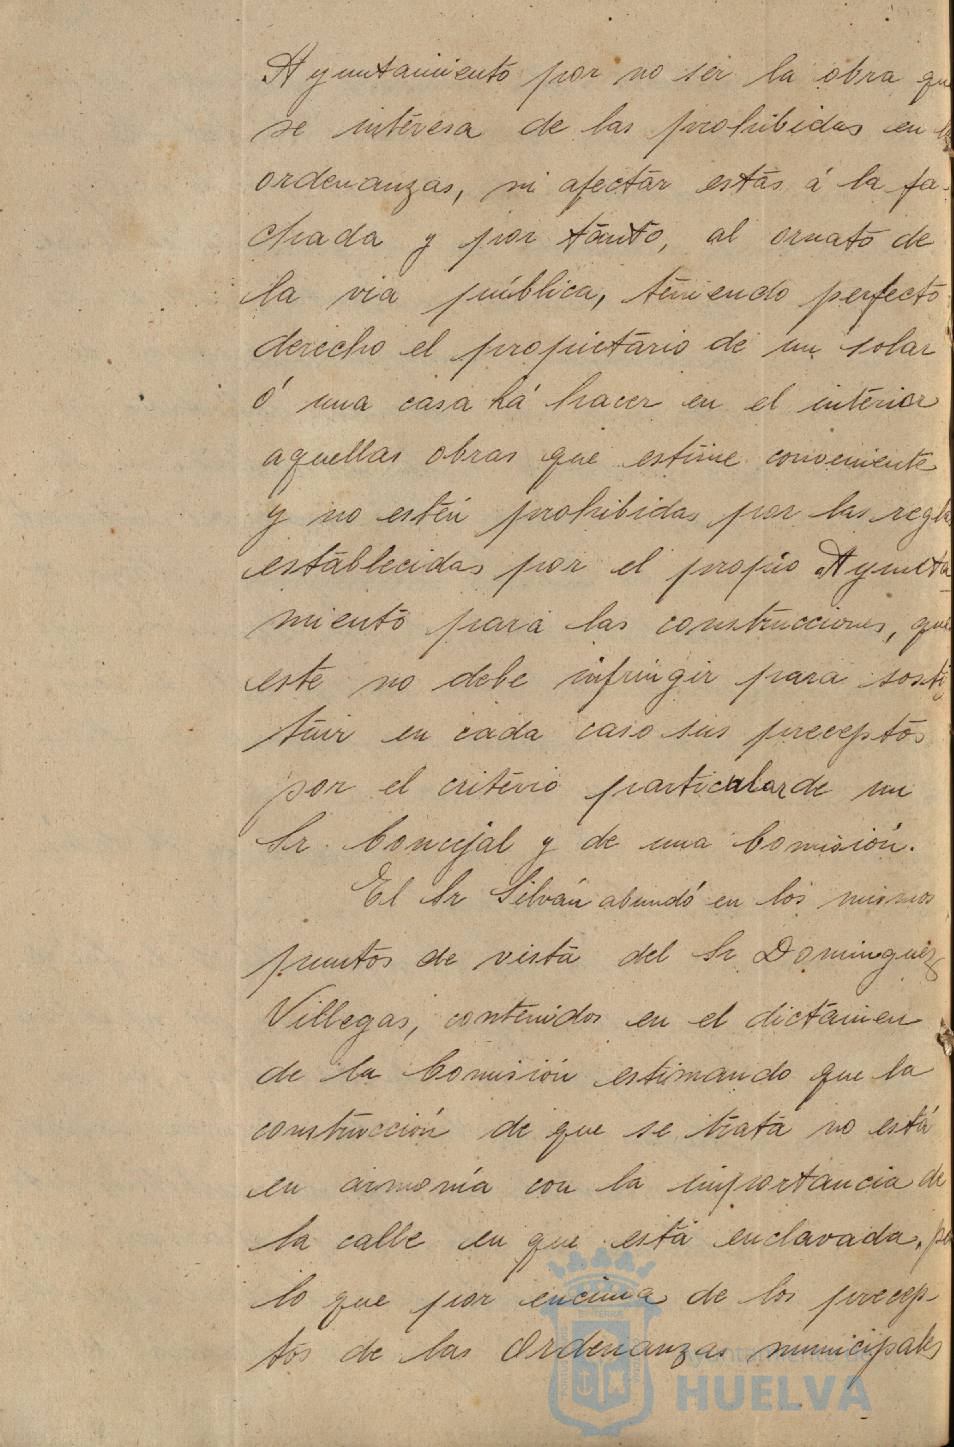 Ayuntamiento por no ser la obra que
se interesa de las prohibidas en la
ordenanzas, ni afectar estas á la fa-
chada y por tanto, al ornato de
la via pública, teniendo perfecto
derecho el propietario de un solar
ó una casa há hacer en el interior
aquellas obras que estime conveniente
y no estén prohibidas por las regla
establecidas por el propio Ayunta
miento para las construcciones, que
este no debe infringir para sosti
tuir en cada caso sus preceptos
por el criterio particular de un
Sr. Concejal y de una Comisión.
El Sr Silván abundó en los mismos
puntos de vista del Sr Dominguez
Villegas, contenidos en el dictámen
de la Comisión estimando que la
construcción de que se trata no está
en armonía con la importancia de
la calle en que está enclavada, po
lo que por encima de los precep-
tos de las Ordenanzas municipales
Ayuntamiento de
HUELVA